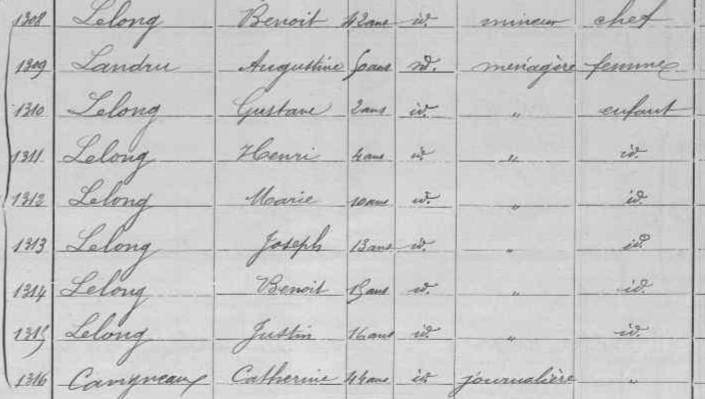 1308 Lelong Benoit 42 ans id. mineur chef
1309 Landru Augustine 50 ans id. ménagère femme
1310 Lelong Gustave 2 ans id. " enfant
1311 Lelong Henri 4 ans id. " id.
1312 Lelong Marie 10 ans id. " id.
1313 Lelong Joseph 13 ans id. " id.
1314 Lelong Benoit 15 ans id. " id.
1315 Lelong Justin 16 ans id. " id.
1316 Catherine 44 ans id. journalière "